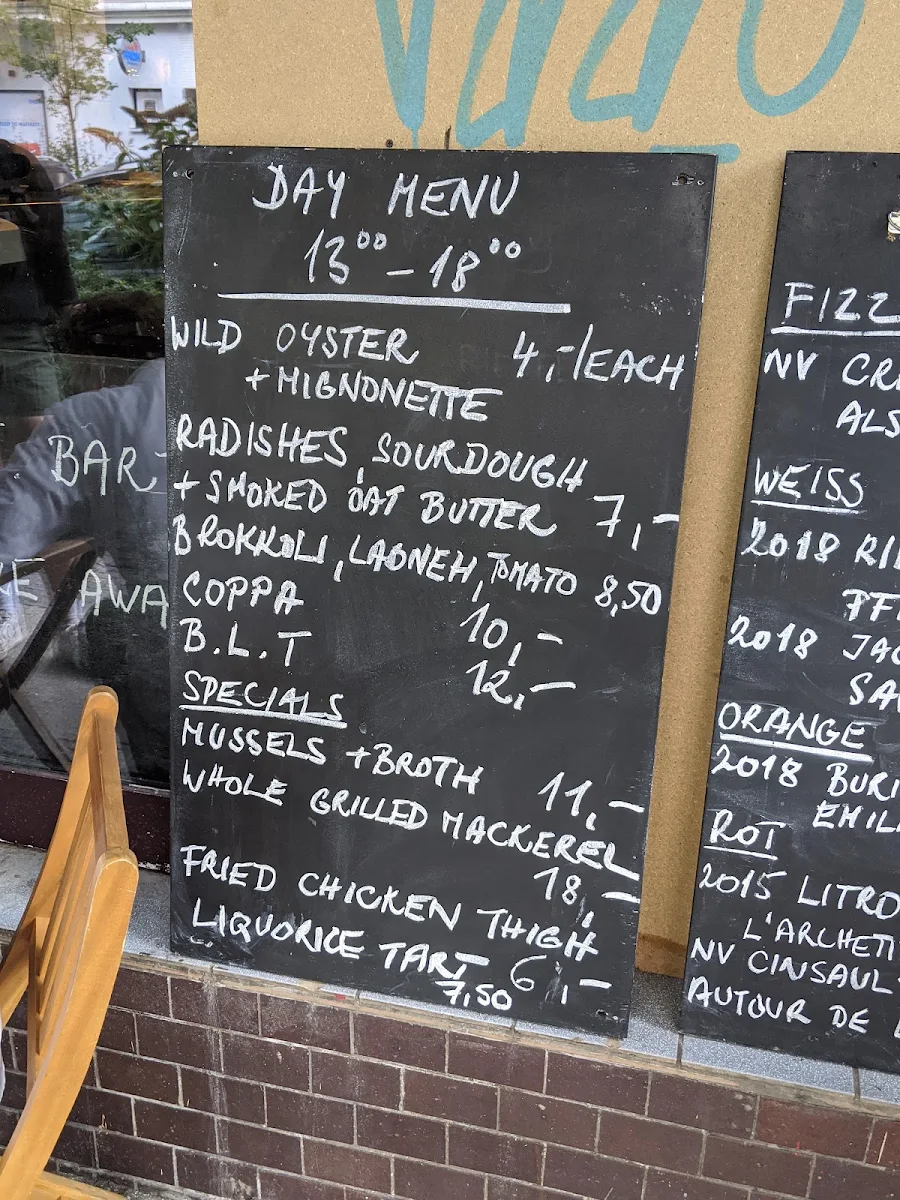 DAY MENU
13⁰⁰ - 18⁰⁰
WILD OYSTER 4,-/EACH
+ MIGNONETTE
RADISHES, SOURDOUGH
+ SMOKED OAT BUTTER 7,-
BROKKOLI, LABNEH, TOMATO 8,50
COPPA 10,-
B.L.T 12,-
SPECIALS
MUSSELS + BROTH 11,-
WHOLE GRILLED MACKEREL
18,-
FRIED CHICKEN THIGH
LIQUORICE TART 6,-
7,50
BAR
AWA
FIZZ
NV CR
ALS
WEISS
2018 RI
PF
2018 JAC
SA
ORANGE
2018 BURI
EMIL
ROT
2015 LITRO
L'ARCHETI
NV CINSAUL
AUTOUR DE